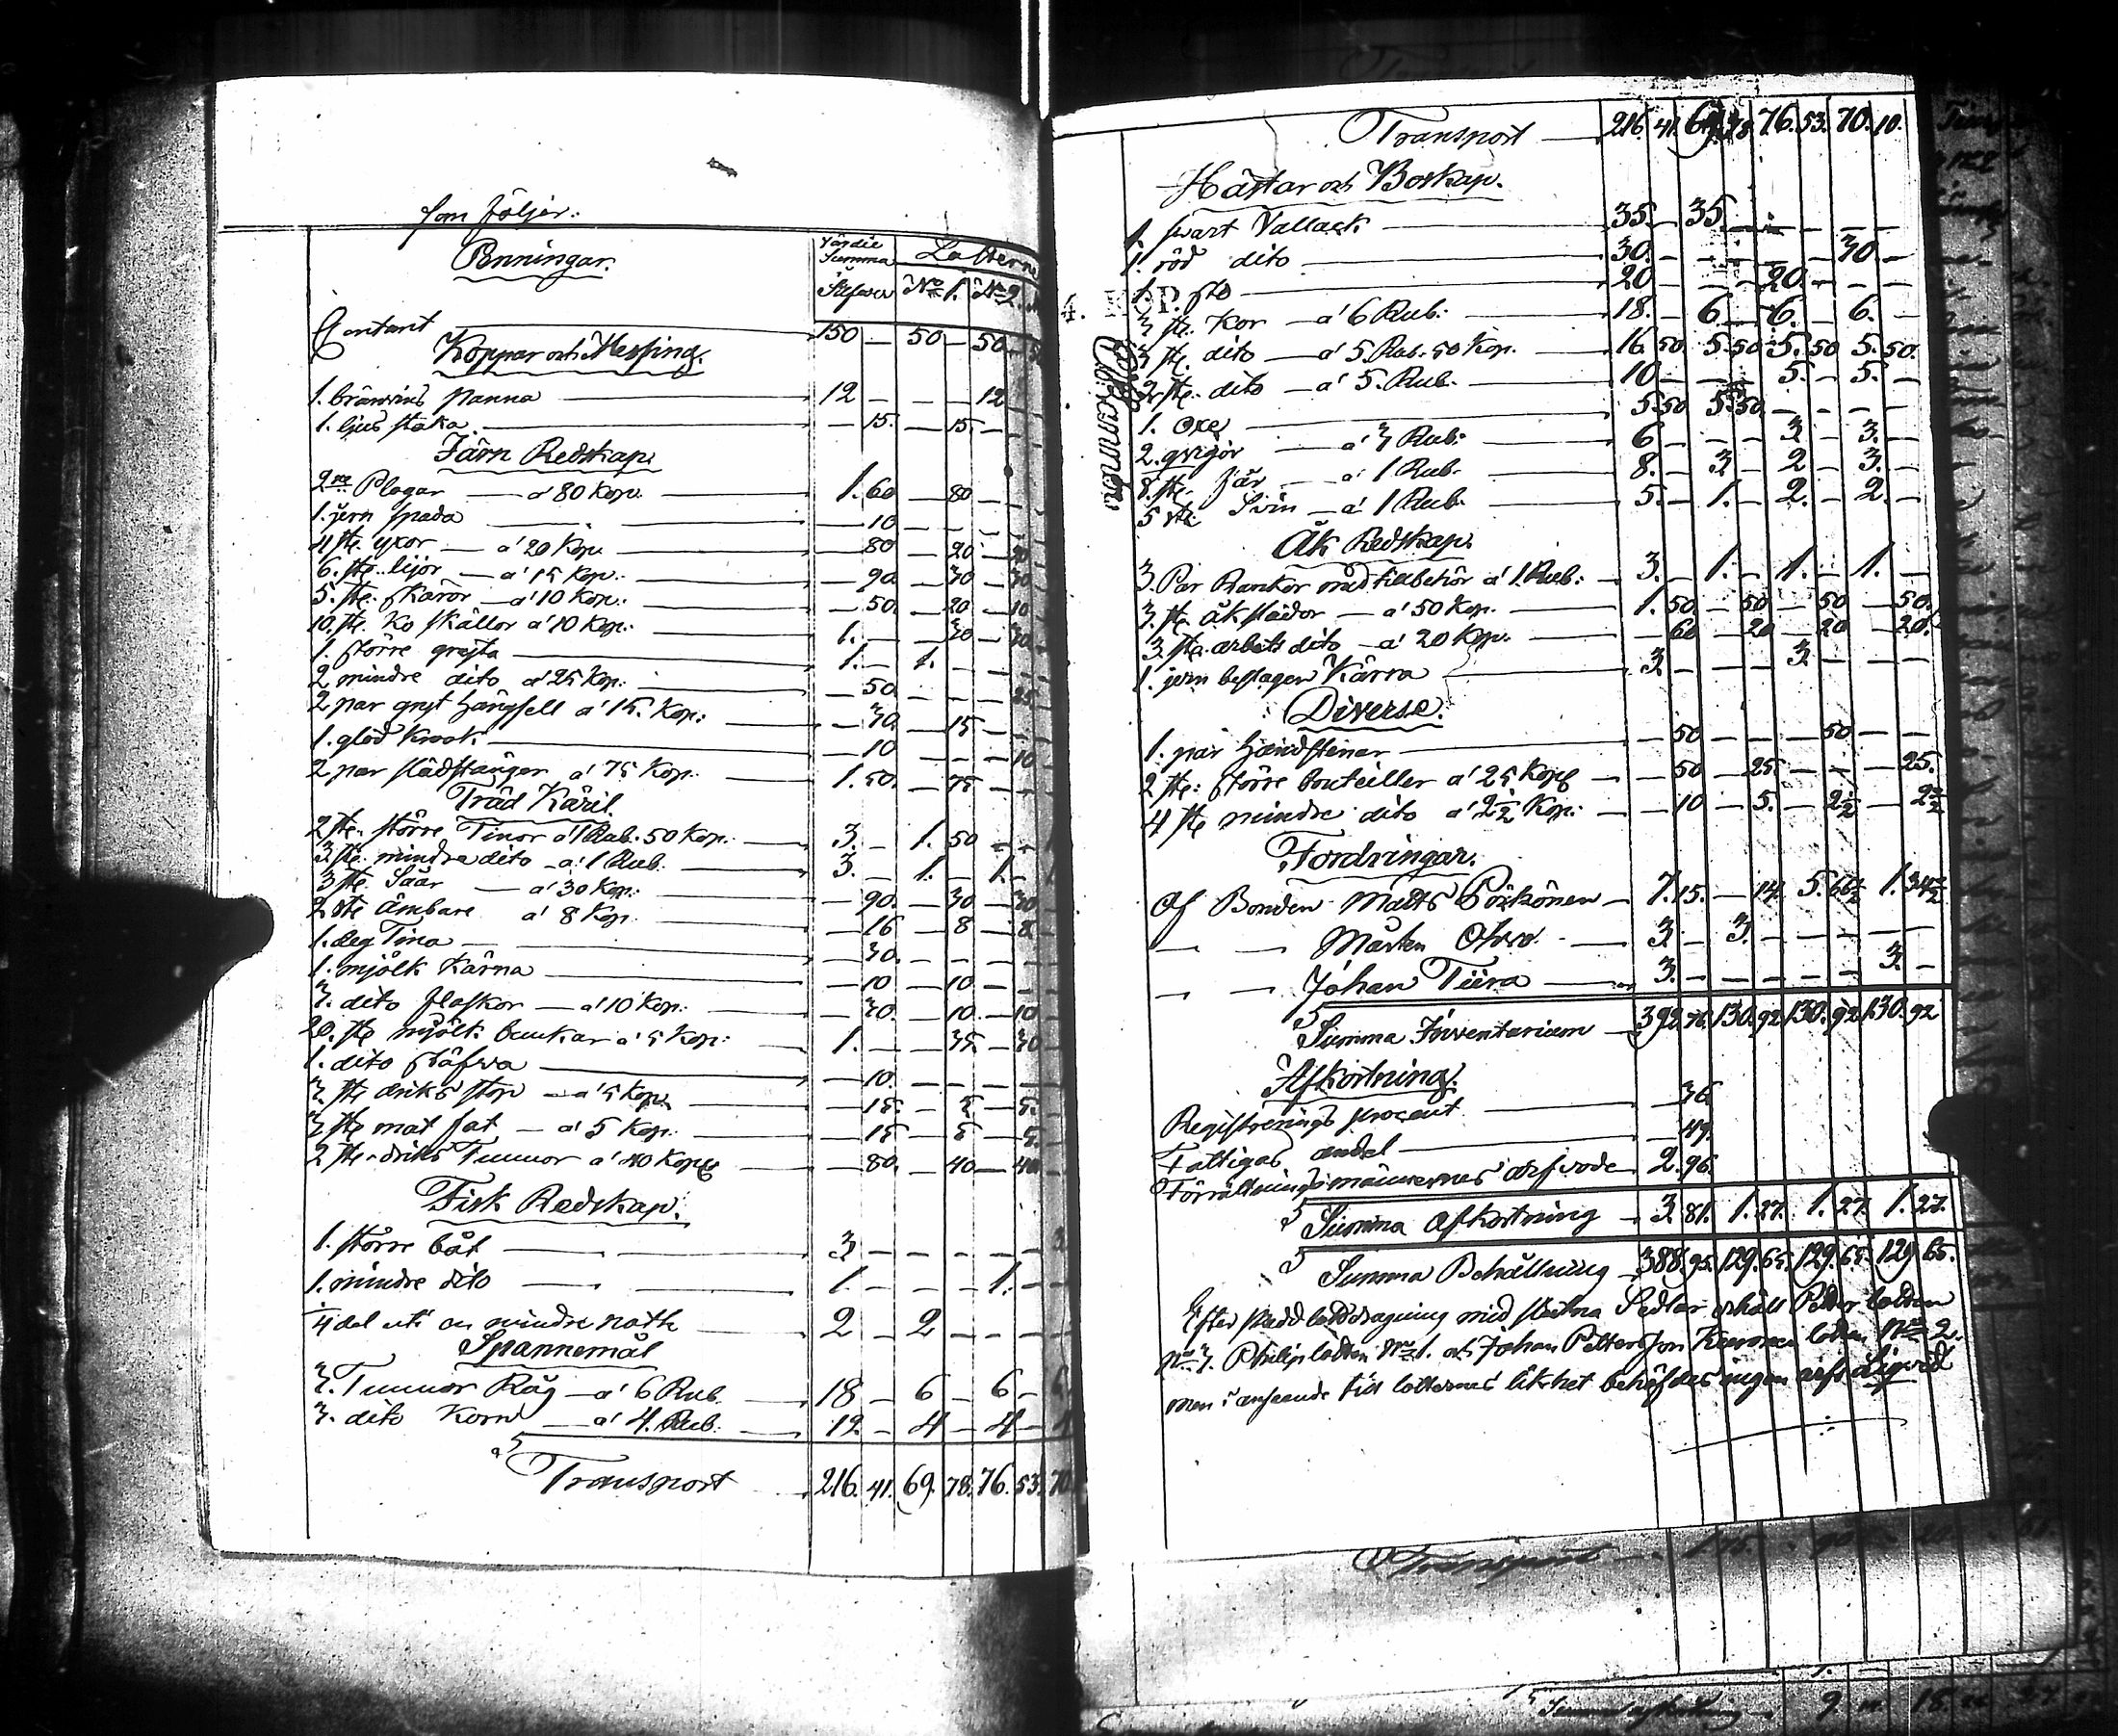 som följer.
Penningar.
Värdie Summa Lotterne
Silfwer No 1. No 2.
Contant 150 — 50 — 50
Koppar och Messing.
1. bränvins panna 12 — — — 12
1. ljus staka — 15. — 15. —
Järn Redskap.
2ne Plogar — a' 80 Kop. 1. 60 — 80 —
1. jern spada — 10 — — —
4 st. yxor — a' 20 Kop. — 80 — 20 — 20
6. st. lijor — a' 15 Kop. — 90 — 30 — 30
5. st. skäror — a' 10 Kop. — 50. — 20 — 10
10. st. Ko skällor a' 10 Kop. 1. — — 30 — 30
1. större gryta 1. — 1. — — —
2 mindre dito a' 25 Kop. — 50 — — — 25
2 par gryt hängsell a' 15. Kop. — 30. — 15 —
1. glöd Krok — 10 — — — 10
2 par slädstänger a' 75 Kop. 1. 50. — 75 —
Träd Käril
2 st. större Tinor a' 1 Rub. 50 Kop. 3. — 1. 50 — —
3 st. mindre dito — a' 1 Rub. 3. — 1. — 1. —
3 st. Såar — a' 30 Kop. — 90. — 30 — 30
2 st. ämbare a' 8 Kop. — 16 — 8 — 8
1. deg Tina — 30. — — —
1. mjölk Kärna — 10 — 10 — —
3. dito flaskor — a' 10 Kop. — 30. — 10. — 10
20. st. mjölk bunkar a' 5 Kop. 1. — — 35. — 30
1. dito stäfva — 10. — — —
3 st. driks stop — a' 5 Kop. — 15. — 5 — 5.
3 st. mat fat — a' 5 Kop. — 15 — 5 — 5.
2 st. driks Tunnor a' 40 Kop. — 80. — 40 — 40
Fisk Redskap.
1. större båt 3 — — — —
1. mindre dito 1. — — — 1. —
1/4 del uti en mindre noth 2 — 2 — — —
Spannemål
3. Tunnor Råg — a' 6 Rub. 18 — 6 — 6 — 6
3. dito Korn — a' 4. Rub. 12 — 4 — 4 — 4
Transport 216. 41. 69. 78. 76. 53. 70
Transport 216. 41. 69. 78. 76. 53. 70. 10.
Hästar och Boskap.
1. svart Vallack 35. — 35. — — — — —
1. röd dito 30. — — — — — 30 —
1. sto 20 — — — 20. — — —
3 st. Kor — a' 6 Rub. 18. — 6. — 6. — 6. —
3 st. dito — a' 5. Rub. 50 Kop. 16. 50 5. 50 5. 50 5. 50.
2 st. dito — a' 5. Rub. 10 — — — 5. — 5. —
1. Oxe 5. 50 5. 50. — — — —
2. qvigor — a' 3 Rub. 6 — — — 3 — 3. —
8. st. får — a' 1 Rub. 8. — 3. — 2 — 3. —
5 st. Svin — a' 1 Rub. 5. — 1. — 2. — 2. —
Åk Redskap.
3. Par Rankor med tilbehör a' 1. Rub. 3. — 1. — 1. — 1. —
3. st. åk slädor — a' 50 Kop. 1. 50. — 50 — 50 — 50.
3 st. arbets dito — a' 20 Kop. — 60 — 20 — 20 — 20.
1. jern beslagen Kärra 3. — — — 3. — — —
Diverse.
1. par handstenar — 50 — — — 50 — —
2 st. större bouteiller a' 25 Kop. — 50 — 25 — — — 25.
4 st. mindre dito a' 2 1/2 Kop. — 10 — 5. — 2 1/2 — 2 1/2
Fordringar.
Af Bonden Matts 7. 15. — 14. 5. 66 1/2 1. 34 1/2
— — Mårten 3. — 3. — — — — —
— — Johan Tiira 3. — — — — — 3. —
Summa Inventarium 392. 76. 130. 92 130. 92 130. 92
Afkortning.
Registrerings procent — 36
Fattigas andel — 49.
Förrättningsmännernes arfvode 2. 96.
Summa Afkortning 3. 81. 1. 27. 1. 27. 1. 27.
Summa Behållning 388. 95. 129. 65. 129. 65. 129 65.
Efter skedd lottdragning med slutna Sedlar erhöll Petter lotten
No 3. Philip lotten No 1. och Johan Pettersson lotten No 2.
men i anseende till lotternes likhet behöfdes ingen arfs Liqvid
Transport